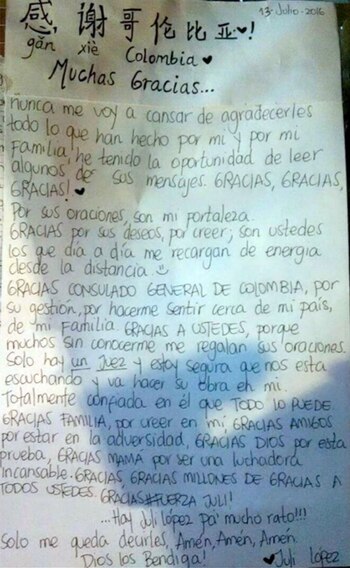 13-Julio-2016
感 谢 哥 伦 比 亚 ♥!
gǎn xiè Colombia ♥
Muchas Gracias...
nunca me voy a cansar de agradecerles
todo lo que han hecho por mi y por mi
Familia, he tenido la oportunidad de leer
algunos de sus mensajes. GRACIAS, GRACIAS,
GRACIAS! ♥
Por sus oraciones, son mi fortaleza.
GRACIAS por sus deseos, por creer; son ustedes
los que día a día me recargan de energia
desde la distancia ☺
GRACIAS CONSULADO GENERAL DE COLOMBIA, por
su gestión, por hacerme sentir cerca de mi país,
de mi Familia GRACIAS A USTEDES, porque
muchos sin conocerme me regalan sus oraciones.
Solo hay un Juez y estoy segura que nos esta
escuchando y va hacer su obra en mi.
Totalmente confiada en él que TODO LO PUEDE.
GRACIAS FAMILIA, por creer en mi, GRACIAS AMIGOS
por estar en la adversidad, GRACIAS DIOS por esta
prueba, GRACIAS MAMÁ por ser una luchadora
incansable. GRACIAS, GRACIAS MILLONES DE GRACIAS A
TODOS USTEDES. GRACIAS #FUERZA JULI!
...Hay Juli López pa' mucho rato!!!
Solo me queda decirles, Amén, Amén, Amén.
Dios los Bendiga! ♥Juli López